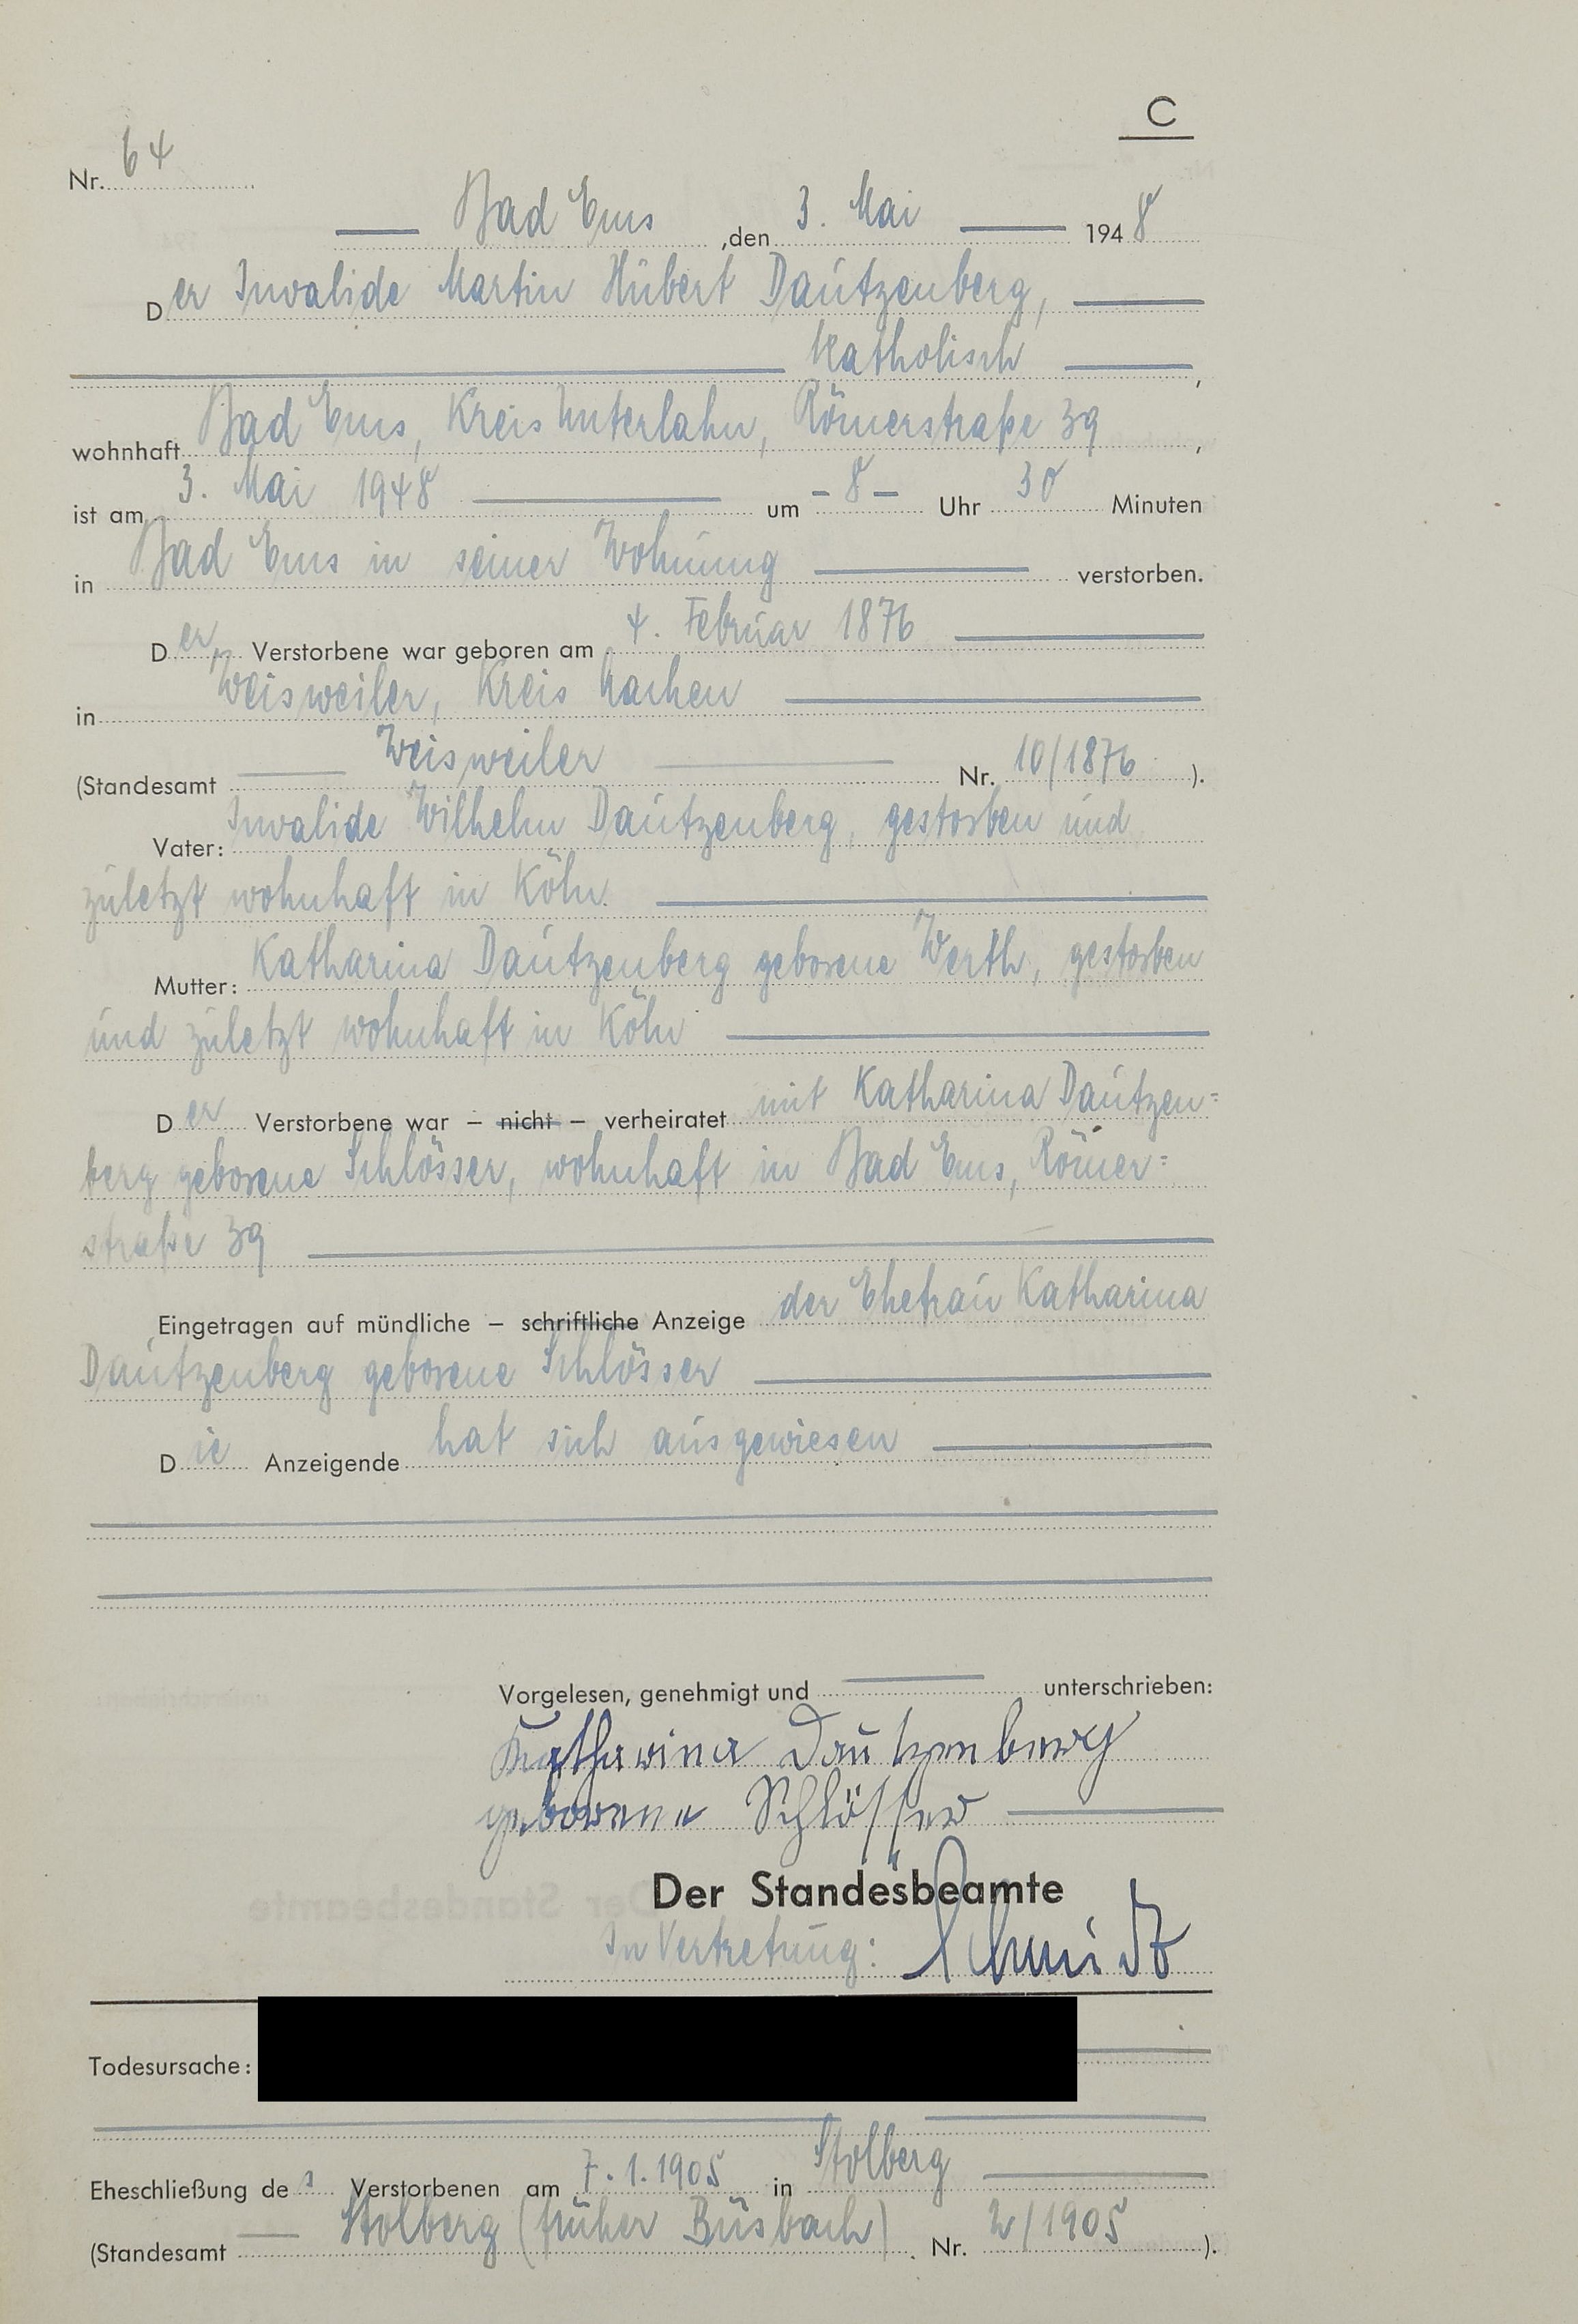 C
Nr. 64
Bad Ems, den 3. Mai 1948
Der Invalide Martin Hubert Dautzenberg,
katholisch,
wohnhaft Bad Ems, Kreis Unterlahn, Römerstraße 39,
ist am 3. Mai 1948 um - 8 - Uhr 30 Minuten
in Bad Ems in seiner Wohnung verstorben.
Der Verstorbene war geboren am 4. Februar 1876
in Weisweiler, Kreis Aachen
(Standesamt Weisweiler Nr. 10/1876).
Vater: Invalide Wilhelm Dautzenberg, gestorben und
zuletzt wohnhaft in Köln.
Mutter: Katharina Dautzenberg geborene Werth, gestorben
und zuletzt wohnhaft in Köln
Der Verstorbene war – nicht – verheiratet mit Katharina Dautzen=
berg geborene Schlösser, wohnhaft in Bad Ems, Römer=
straße 39
Eingetragen auf mündliche – schriftliche Anzeige der Ehefrau Katharina
Dautzenberg geborene Schlösser
Die Anzeigende hat sich ausgewiesen
Vorgelesen, genehmigt und unterschrieben:
Katharina Dautzenberg
geborene Schlösser
Der Standesbeamte
In Vertretung: Schmidt
Todesursache:
Eheschließung des Verstorbenen am 7.1.1905 in Stolberg
(Standesamt Stolberg (früher Büsbach) Nr. 2/1905).